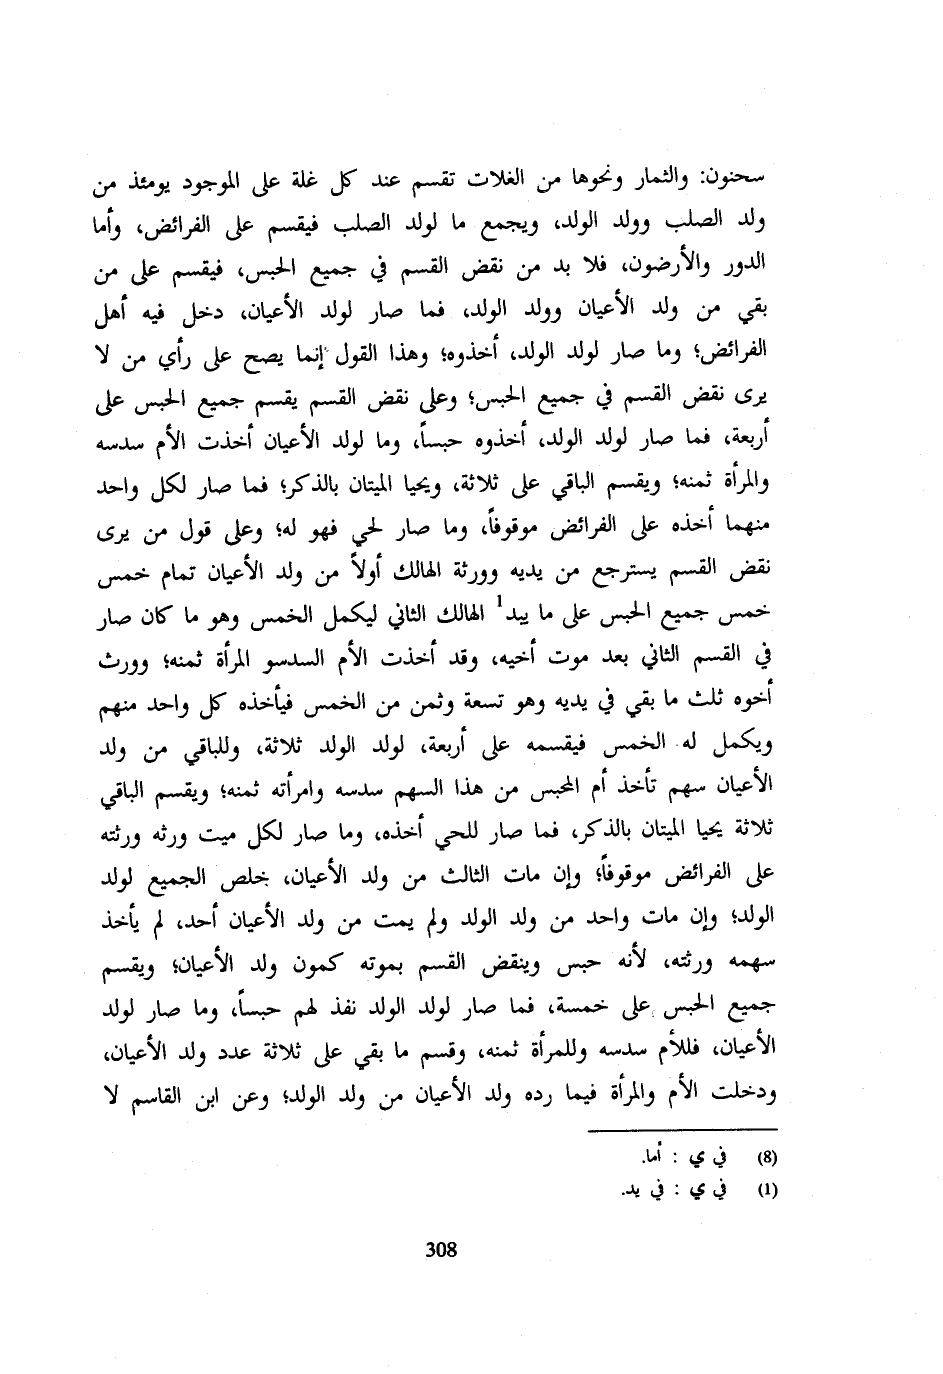 سحنون: والثمار ونحوها من الغلات تقسم عند كل غلة على الموجود يومئذ من
ولد الصلب وولد الولد، ويجمع ما لولد الصلب فيقسم على الفرائض، وأما
الدور والأرضون، فلا بد من نقض القسم في جميع الحبس، فيقسم على من
بقي من ولد الأعيان وولد الولد، فما صار لولد الأعيان، دخل فيه أهل
الفرائض؛ وما صار لولد الولد، أخذوه؛ وهذا القول إنما يصح على رأي من لا
يرى نقض القسم في جميع الحبس؛ وعلى نقض القسم يقسم جميع الحبس على
أربعة، فما صار لولد الولد، أخذوه حبساً، وما لولد الأعيان أخذت الأم سدسه
والمرأة ثمنه؛ ويقسم الباقي على ثلاثة، ويحيا الميتان بالذكر؛ فما صار لكل واحد
منهما أخذه على الفرائض موقوفاً، وما صار لحي فهو له؛ وعلى قول من يرى
نقض القسم يسترجع من يديه وورثة الهالك أولاً من ولد الأعيان تمام خمس
خمس جميع الحبس على ما يبد1 الهالك الثاني ليكمل الخمس وهو ما كان صار
في القسم الثاني بعد موت أخيه، وقد أخذت الأم السدسو المرأة ثمنه؛ وورث
أخوه ثلث ما بقي في يديه وهو تسعة وثمن من الخمس فيأخذه كل واحد منهم
ويكمل له الخمس فيقسمه على أربعة، لولد الولد ثلاثة، وللباقي من ولد
الأعيان سهم تأخذ أم المحبس من هذا السهم سدسه وامرأته ثمنه؛ ويقسم الباقي
ثلاثة يحيا الميتان بالذكر، فما صار للحي أخذه، وما صار لكل ميت ورثه ورثته
على الفرائض موقوفاً؛ وإن مات الثالث من ولد الأعيان، خلص الجميع لولد
الولد؛ وإن مات واحد من ولد الولد ولم يمت من ولد الأعيان أحد، لم يأخذ
سهمه ورثته، لأنه حبس وينقض القسم بموته كمون ولد الأعيان؛ ويقسم
جميع الحبس على خمسة، فما صار لولد الولد نفذ لهم حبساً، وما صار لولد
الأعيان، فللأم سدسه وللمرأة ثمنه، وقسم ما بقي على ثلاثة عدد ولد الأعيان،
ودخلت الأم والمرأة فيما رده ولد الأعيان من ولد الولد؛ وعن ابن القاسم لا
(8) في ي : أما.
(1) في ي : في يد.
308